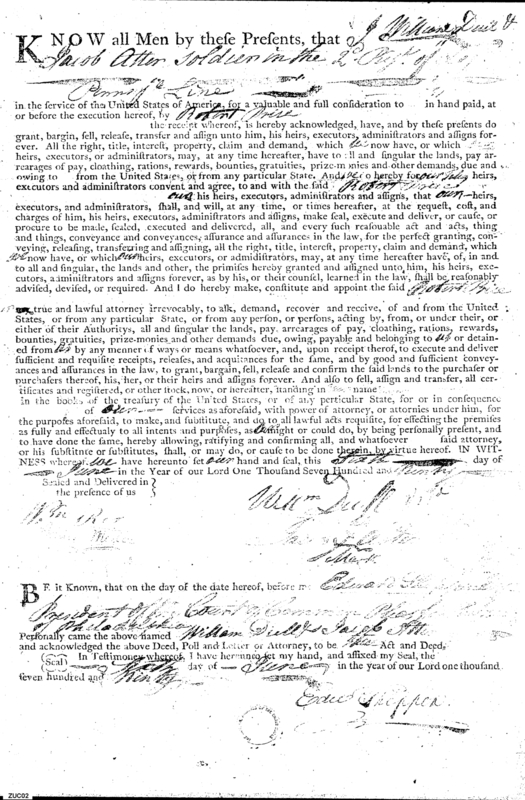 KNOW all Men by theſe Preſents, that William Duit &
Jacob Atter Soldier in the 2d. Regt. of
Penns Line
in the ſervice of the United States of America, for a valuable and full conſideration to in hand paid, at
or before the execution hereof, by Robert
the receipt whereof, is hereby acknowledged, have, and by theſe preſents do
grant, bargin, ſell, releaſe, transfer and aſſign unto him, his heirs, executors, adminiſtrators and aſſigns for-
ever. All the right, title, intereſt, property, claim and demand, which we now have, or which
heirs, executors, or adminiſtrators, may, at any time hereafter, have to all and ſingular the lands, pay ar-
rearages of pay, cloathing, rations, rewards, bounties, gratuities, prize-monies and other demands, due and
owing to from the United States, or from any particular State. And we do hereby for our heirs,
executors and adminiſtrators convent and agree, to and with the ſaid Robert
his heirs, executors, adminiſtrators and aſſigns, that our heirs,
executors, and adminiſtrators, ſhall, and will, at any time, or times hereafter, at the requeſt, coſt, and
charges of him, his heirs, executors, adminiſtrators and aſſigns, make ſeal, execute and deliver, or cauſe, or
procure to be made, ſealed, executed and delivered, all, and every ſuch reaſonable act and acts, thing
and things, conveyance and conveyances, aſſurance and aſſurances in the law, for the perfect granting, con-
veying, releaſing, transfering and aſſigning, all the right, title, intereſt, property, claim and demand, which
we now have, or which our heirs, executors, or admidiſtrators, may, at any time hereafter have, of, in and
to all and ſingular, the lands and other, the primiſes hereby granted and aſſigned unto him, his heirs, exe-
cutors, adminiſtrators and aſſigns forever, as by his, or their counſel, learned in the law, ſhall be reaſonably
adviſed, deviſed, or required. And I do hereby make, conſtitute and appoint the ſaid Robert
our true and lawful attorney irrevocably, to aſk, demand, recover and receive, of and from the United
States, or from any particular State, or from any perſon, or perſons, acting by, from, or under their, or
either of their Authoritys, all and ſingular the lands, pay. arrearages of pay, cloathing, rations, rewards,
bounties, gratuities, prize-monies and other demands due, owing, payable and belonging to us or detain-
ed from us by any manner of ways or means whatſoever, and, upon receipt therof, to execute and deliver
ſufficient and requiſite receipts, releaſes, and acquittances for the ſame, and by good and ſufficient convey-
ances and aſſurances in the law, to grant, bargain, ſell, releaſe and confirm the ſaid lands to the purchaſer or
purchaſers thereof, his, her, or their heirs and aſſigns forever. And alſo to ſell, aſſign and transfer, all cer-
tificates and regiſtered, or other ſtock, now, or hereafter, ſtanding in name
In the books of the treaſury of the United States, or of any perticular State, for or in conſequence
of our ſervices as aforeſaid, with power of attorney, or attornies under him, for
the purpoſes aforeſaid, to make, and ſubſtitute, and do to all lawful acts requiſite, for effecting the premiſes
as fully and effectualy to all intents and purpoſes, as might or could do, by being perſonally preſent, and
to have done the ſame, hereby allowing, ratifying and confirming all, and whatſoever ſaid attorney,
or his ſubſtitute or ſubſtitutes, ſhall, or may do, or cauſe to be done therein, by virtue hereof. IN WIT-
NESS whereof, we have hereunto ſet our hand and ſeal, this day of
June in the Year of our Lord One Thouſand Seven Hundred and Ninety
Sealed and Delivered in
the preſence of us
Willm Duitt
Mark
BE it Known, that on the day of the date hereof, before me Edward
Preſident of the Court of Common Pleas
of Philadelphia
Perſonally came the above named William Duitt & Jacob Atter
and acknowledged the above Deed, Poll and Letter or Attorney, to be their Act and Deed.
(Seal) In Teſtimony whereof, I have hereunto ſet my hand, and affixed my Seal, the
day of June in the year of our Lord one thouſand
ſeven hundred and Ninety
Edwd. Shippen
ZUC02